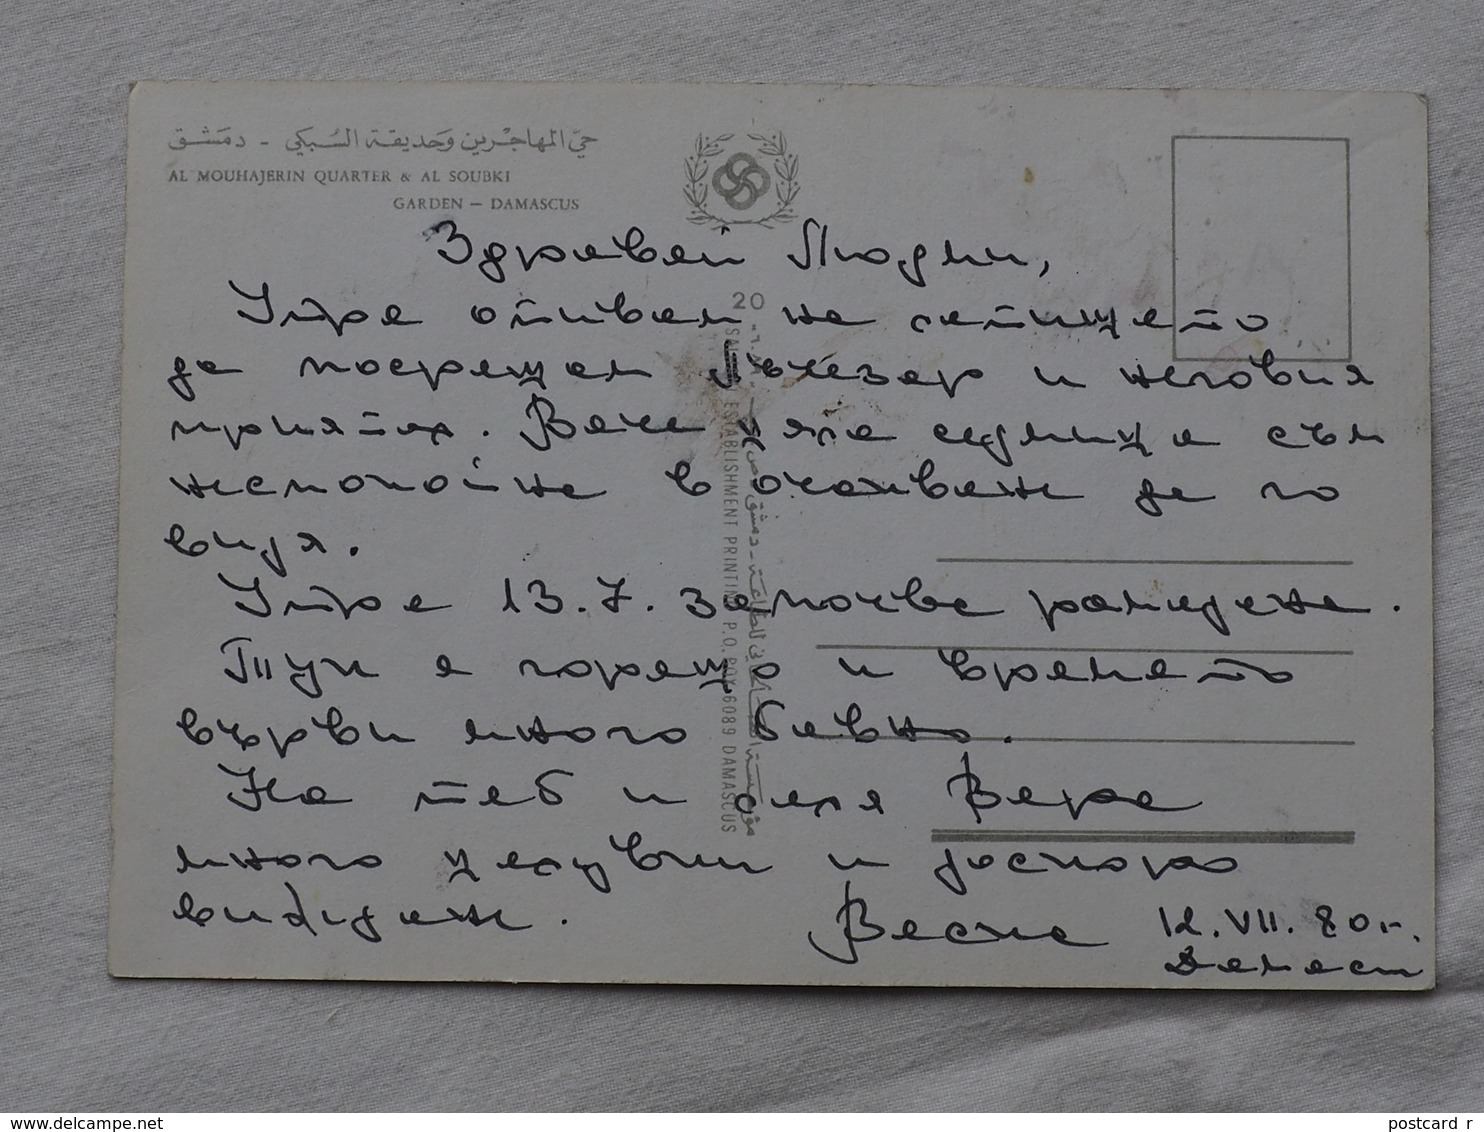 حيّ المهاجرين وحديقة السبكي - دمشق
AL MOUHAJERIN QUARTER & AL SOUBKI
GARDEN – DAMASCUS
Здравей Людми,
Утре отивам на летището
да посрещам и неговия
приятел. Вече цяла седмица съм
неспокойна в очакване да го
видя.
Утре 13.7. започва рамадана.
Тук е горещо и времето
върви много бавно.
На теб и леля Вера
много целувки и доскоро
виждане. Весна 12.VII.80г.
Дамаск
20
ESTABLISHMENT PRINTING P.O. BOX 6089 DAMASCUS
postcard r